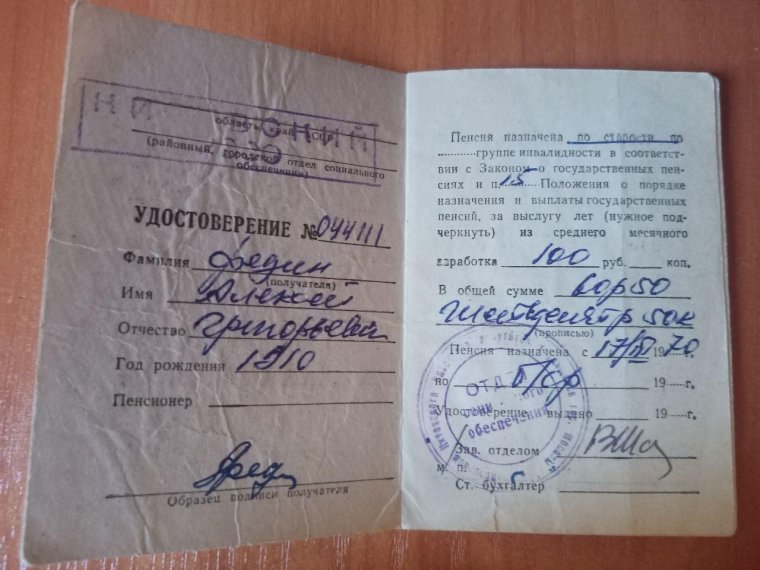 область край ССР
(районный, городской отдел социального
обеспечения)
УДОСТОВЕРЕНИЕ № 044111
Фамилия Федин
(получателя)
Имя Алексей
Отчество Григорьевич
Год рождения 1910
Пенсионер
Образец подписи получателя
Пенсия назначена по старости по
группе инвалидности в соответст-
вии с Законом о государственных пен-
сиях и п. 15 Положения о порядке
назначения и выплаты государственных
пенсий, за выслугу лет (нужное под-
черкнуть) из среднего месячного
заработка 100 руб. коп.
В общей сумме 60р50
Шестьдесят р 50к
(прописью)
Пенсия назначена с 17/III 1970
по б/ср 19 г.
Удостоверение выдано 19 г.
Зав. отделом
м. п.
Ст. бухгалтер
ОТД
обеспечения